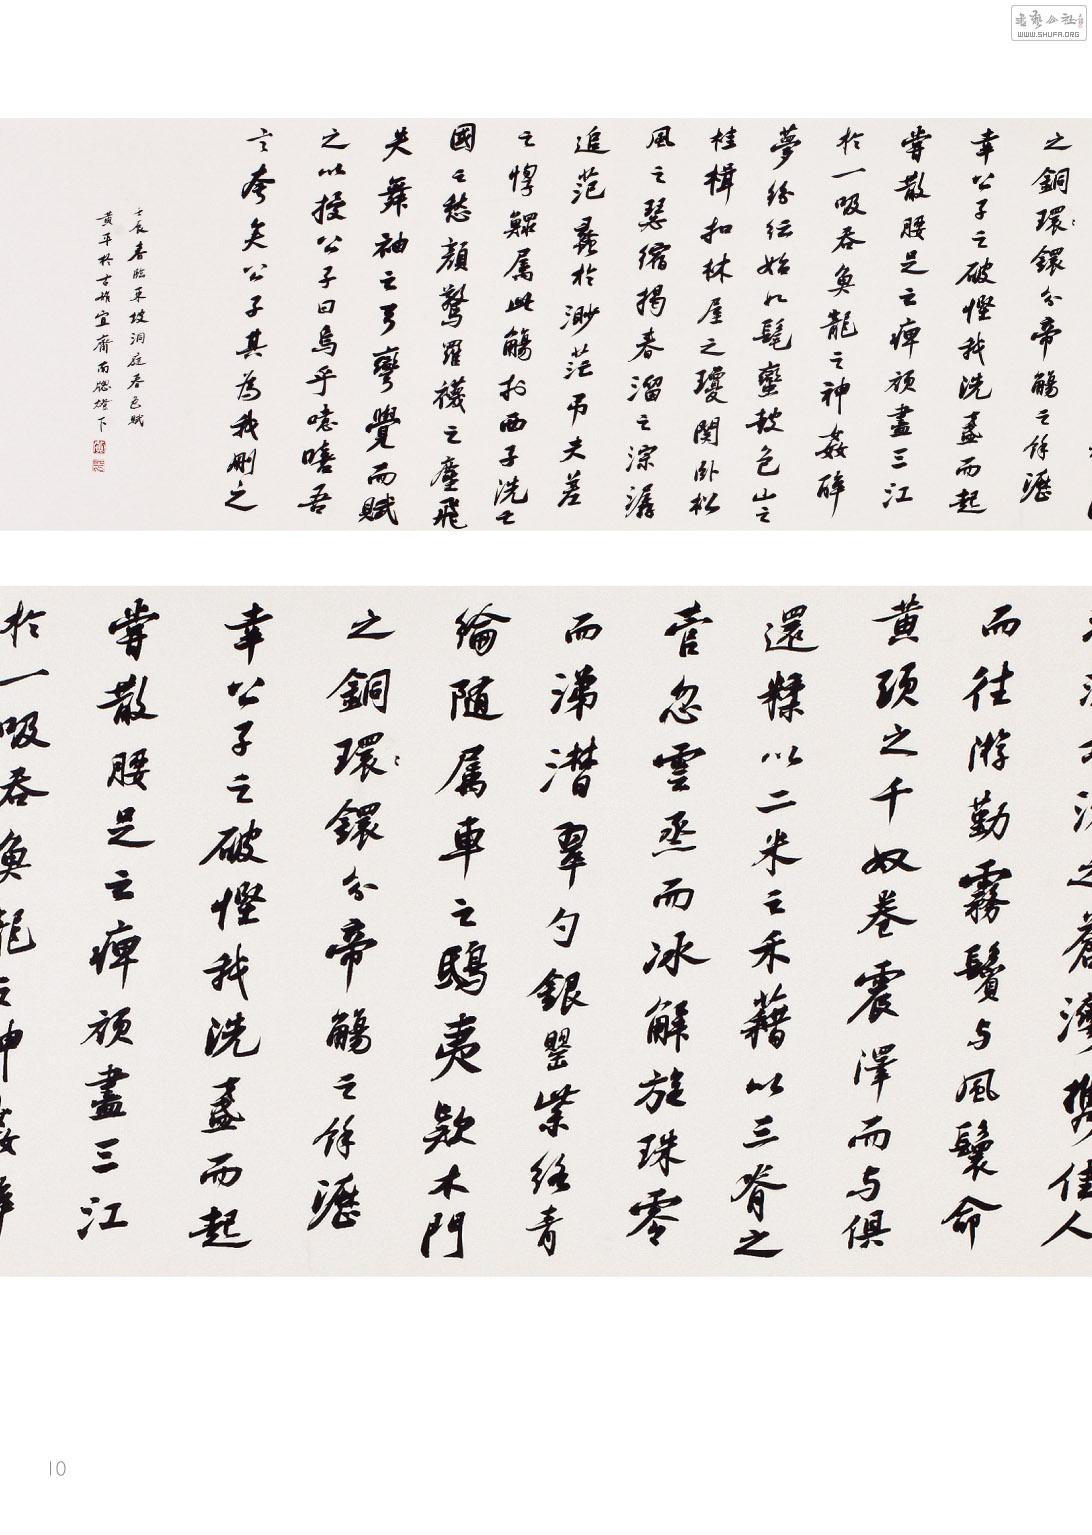 書艺公社
WWW.SHUFA.ORG
之銅環鐶分帝觴之餘瀝
幸公子之破慳我洗盞而起
嘗散腰足之痺頑盡三江
於一吸吞魚龍之神姦醉
夢紛紜始如髦蠻鼓包山之
桂楫扣林屋之瓊関卧松
風之瑟縮揭春溜之淙潺
追范蠡於渺茫吊夫差
之惸鰥属此觴於西子洗亡
國之愁顔驚羅襪之塵飛
失舞袖之弓彎覺而賦
之以授公子曰烏乎噫嘻吾
言夸矣公子其為我刪之
壬辰春臨東坡洞庭春色賦
黄平於古雉宜齋南窗燈下
之蒼灣攜佳人
而往游勤霧鬢与風鬟命
黄頭之千奴卷震澤而与俱
還糅以二米之禾藉以三脊之
菅忽雲烝而冰解旋珠零
而涕潸翠勺銀罌紫絡青
綸随属車之鴟夷欵木門
之銅環鐶分帝觴之餘瀝
幸公子之破慳我洗盞而起
嘗散腰足之痺頑盡三江
於一吸吞魚龍之神姦醉
10